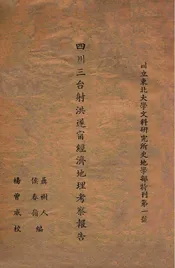 國立東北大學文科研究所史地學部計刊第一號
四川三台射洪遂甯經濟地理考察報告
孟樹人
侯春嶺 編
楊曾威校